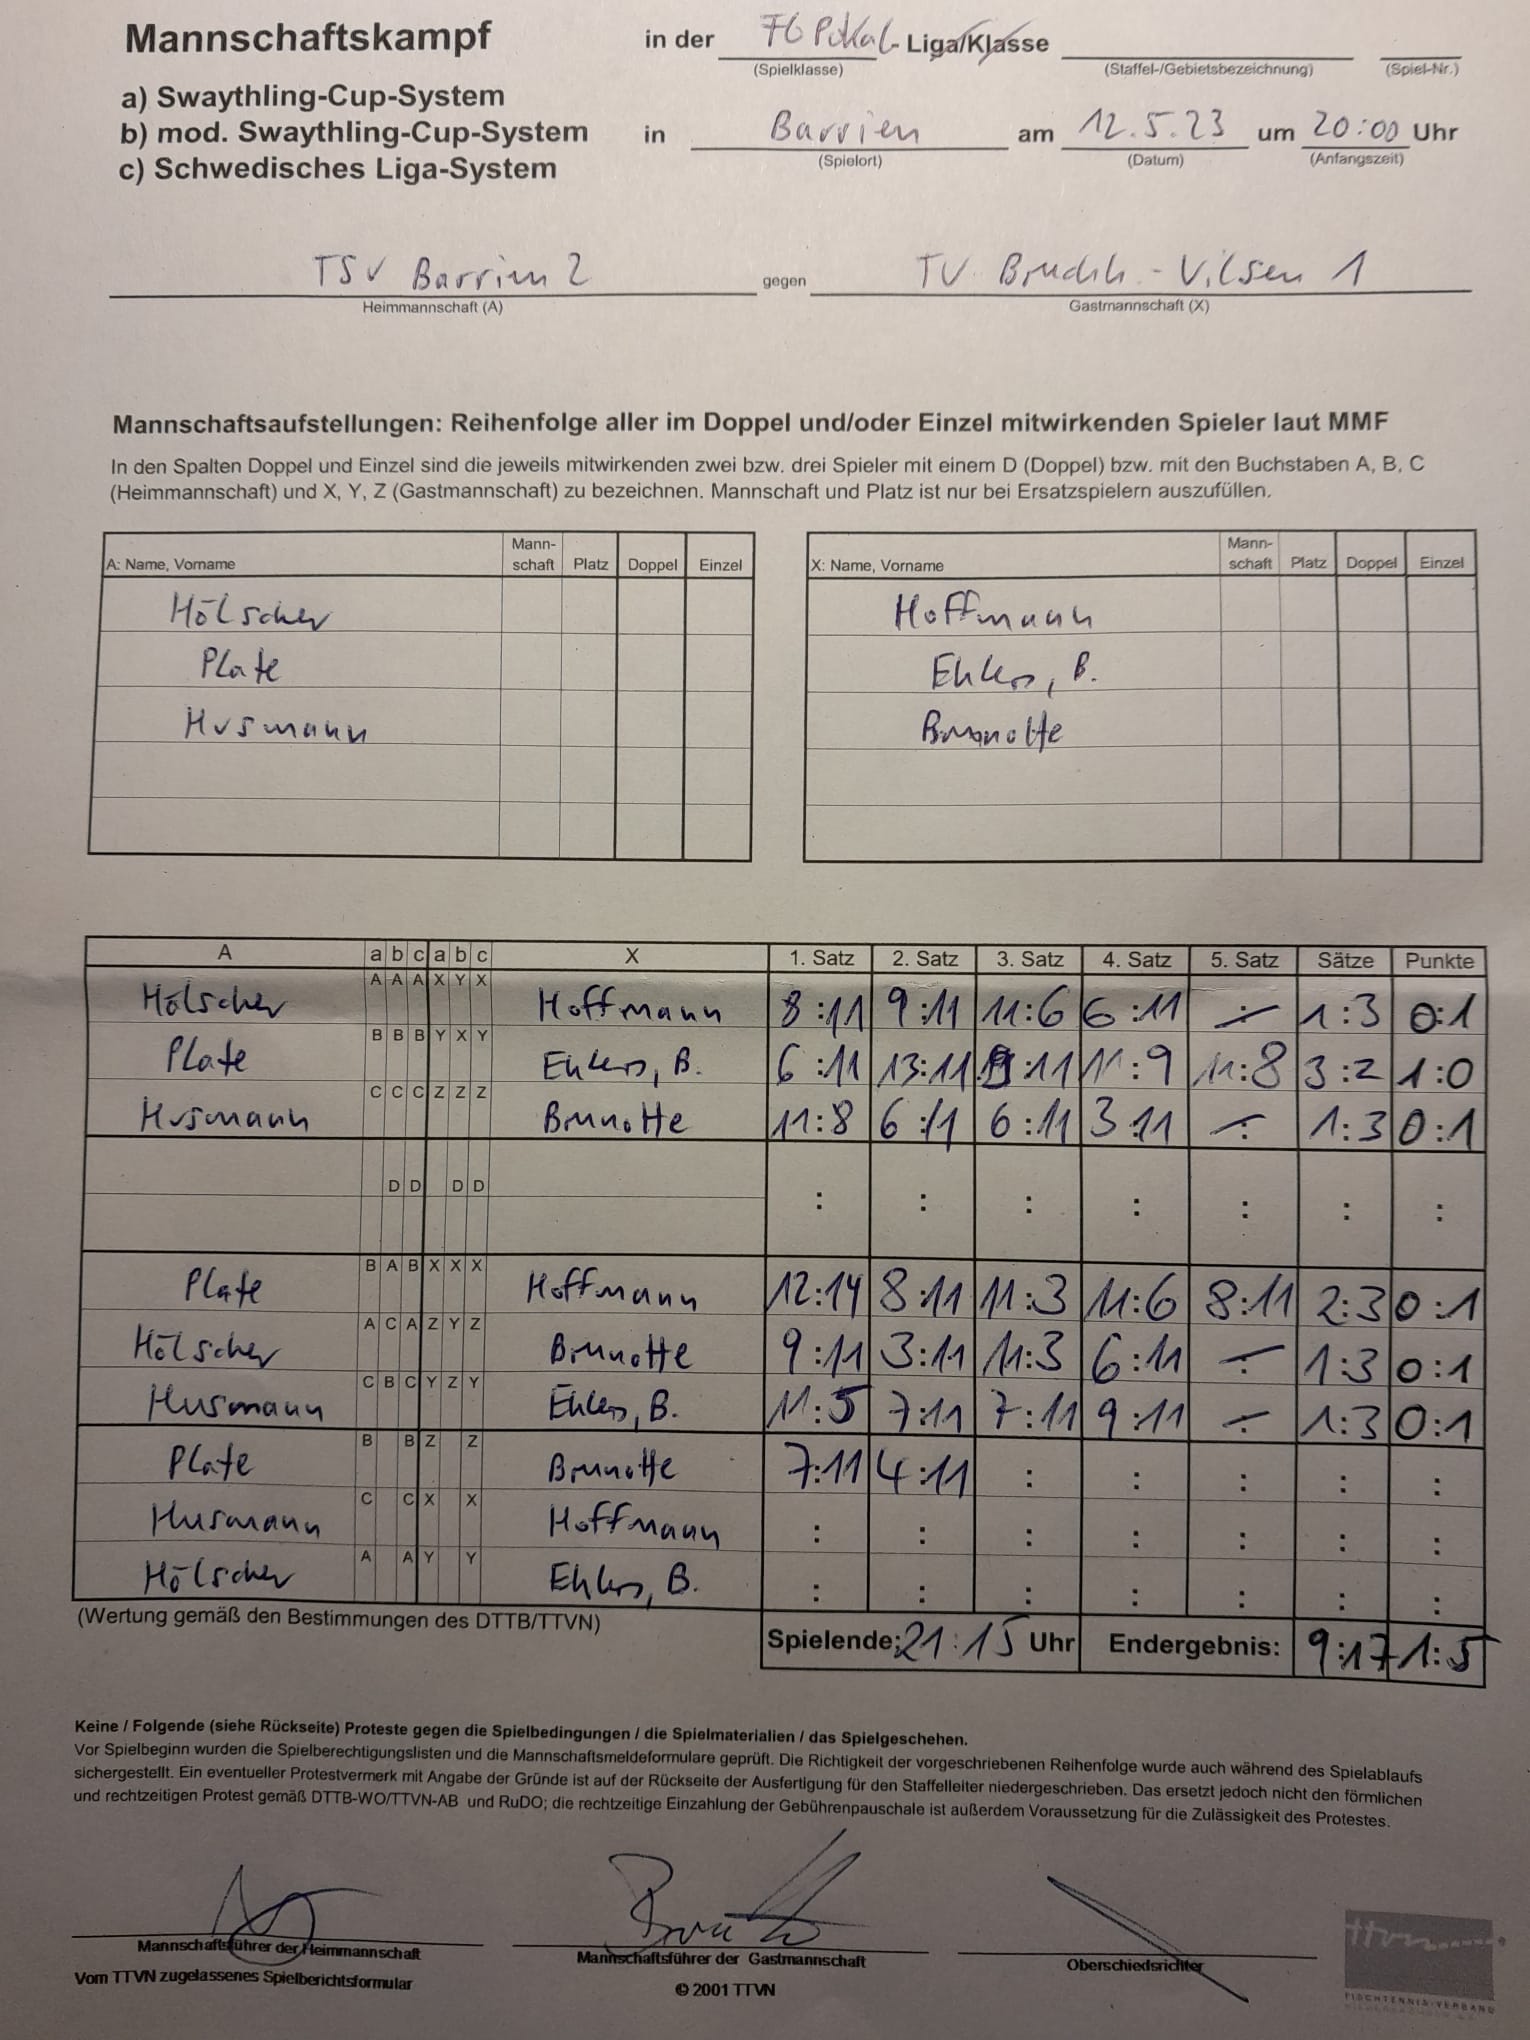 Mannschaftskampf in der 7G Pokal - Liga/Klasse
(Spielklasse) (Staffel-/Gebietsbezeichnung) (Spiel-Nr.)
a) Swaythling-Cup-System
b) mod. Swaythling-Cup-System in Barrien am 12.5.23 um 20:00 Uhr
(Spielort) (Datum) (Anfangszeit)
c) Schwedisches Liga-System
TSV Barrien 2 gegen TV Bruchh.-Vilsen 1
Heimmannschaft (A) Gastmannschaft (X)
Mannschaftsaufstellungen: Reihenfolge aller im Doppel und/oder Einzel mitwirkenden Spieler laut MMF
In den Spalten Doppel und Einzel sind die jeweils mitwirkenden zwei bzw. drei Spieler mit einem D (Doppel) bzw. mit den Buchstaben A, B, C
(Heimmannschaft) und X, Y, Z (Gastmannschaft) zu bezeichnen. Mannschaft und Platz ist nur bei Ersatzspielern auszufüllen.
A: Name, Vorname Mann-schaft Platz Doppel Einzel X: Name, Vorname Mann-schaft Platz Doppel Einzel
Hölscher Hoffmann
Plate Ehlers, B.
Husmann Brunotte
A a b c a b c X 1. Satz 2. Satz 3. Satz 4. Satz 5. Satz Sätze Punkte
Hölscher A A A X Y X Hoffmann 8:11 9:11 11:6 6:11 - 1:3 0:1
Plate B B B Y X Y Ehlers, B. 6:11 13:11 :11 11:9 11:8 3:2 1:0
Husmann C C C Z Z Z Brunotte 11:8 6:11 6:11 3:11 - 1:3 0:1
D D D D : : : : : : :
Plate B A B X X X Hoffmann 12:14 8:11 11:3 11:6 8:11 2:3 0:1
Hölscher A C A Z Y Z Brunotte 9:11 3:11 11:3 6:11 - 1:3 0:1
Husmann C B C Y Z Y Ehlers, B. 11:5 7:11 7:11 9:11 - 1:3 0:1
Plate B B Z Z Brunotte 7:11 4:11 : : : : :
Husmann C C X X Hoffmann : : : : : : :
Hölscher A A Y Y Ehlers, B. : : : : : : :
(Wertung gemäß den Bestimmungen des DTTB/TTVN)
Spielende: 21:15 Uhr Endergebnis: 9:17 1:5
Keine / Folgende (siehe Rückseite) Proteste gegen die Spielbedingungen / die Spielmaterialien / das Spielgeschehen.
Vor Spielbeginn wurden die Spielberechtigungslisten und die Mannschaftsmeldeformulare geprüft. Die Richtigkeit der vorgeschriebenen Reihenfolge wurde auch während des Spielablaufs
sichergestellt. Ein eventueller Protestvermerk mit Angabe der Gründe ist auf der Rückseite der Ausfertigung für den Staffelleiter niedergeschrieben. Das ersetzt jedoch nicht den förmlichen
und rechtzeitigen Protest gemäß DTTB-WO/TTVN-AB und RuDO; die rechtzeitige Einzahlung der Gebührenpauschale ist außerdem Voraussetzung für die Zulässigkeit des Protestes.
Mannschaftsführer der Heimmannschaft Mannschaftsführer der Gastmannschaft Oberschiedsrichter
Vom TTVN zugelassenes Spielberichtsformular © 2001 TTVN
ttvn
TISCHTENNIS-VERBAND